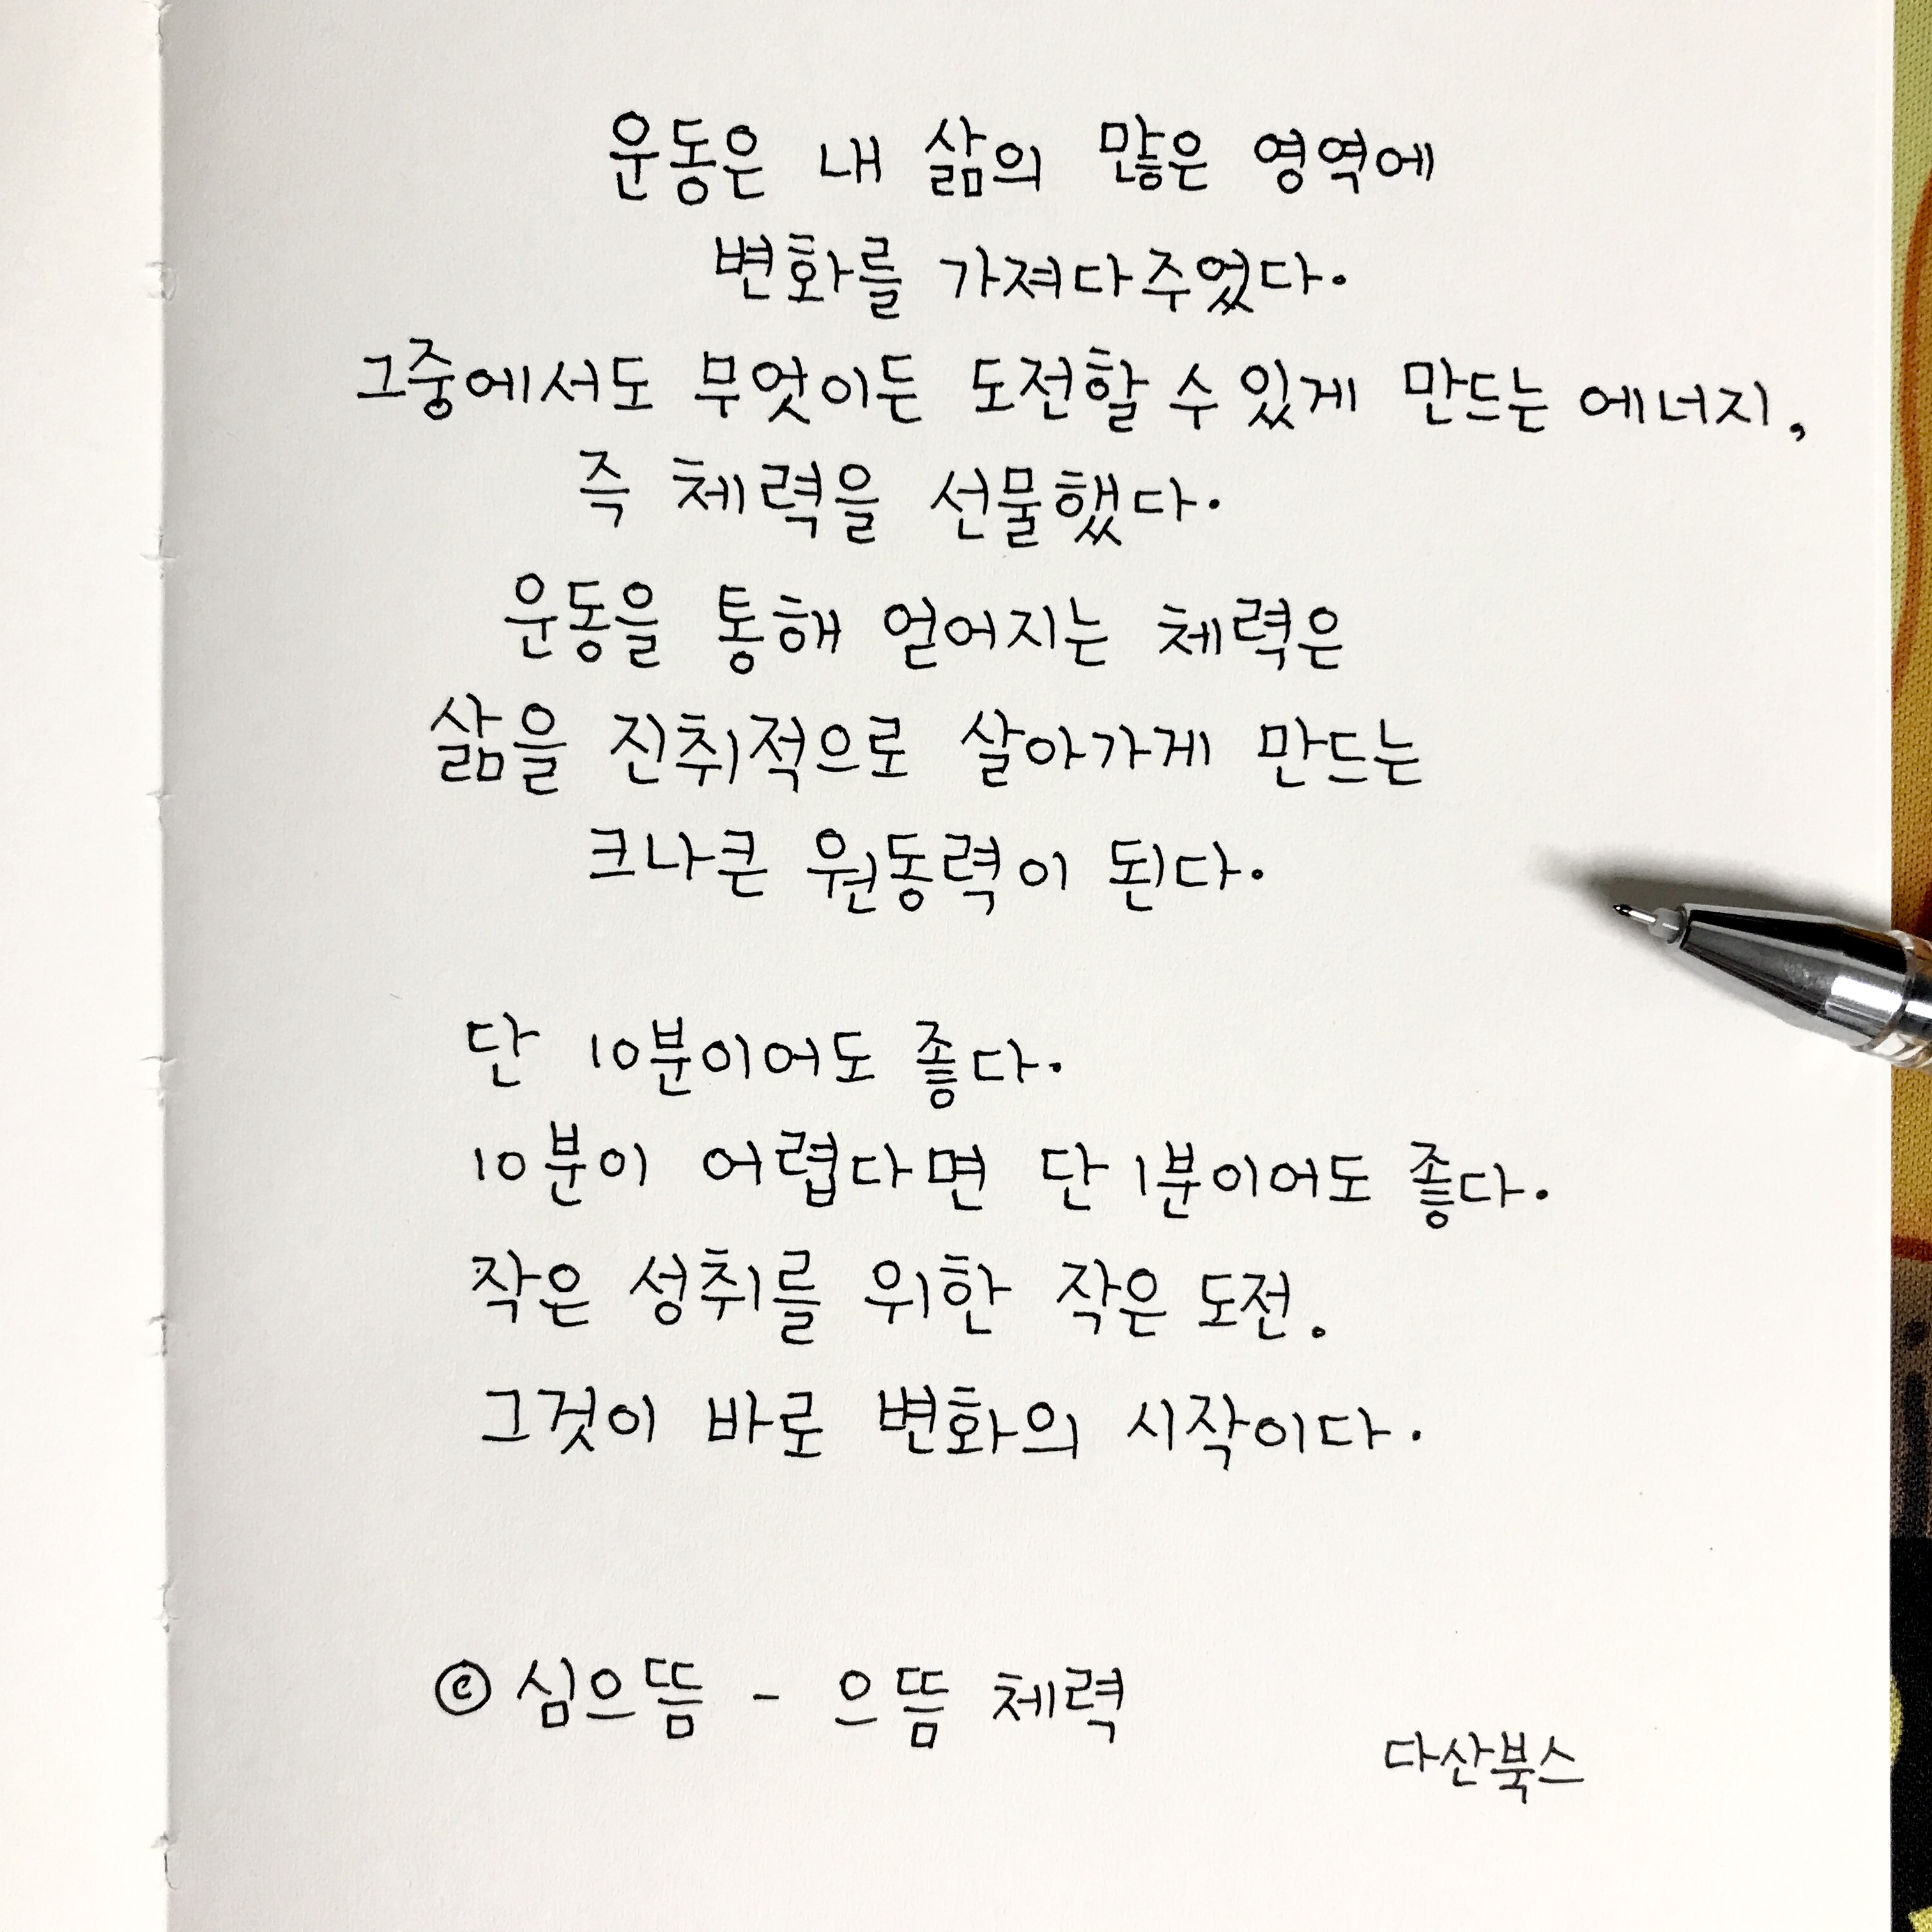 운동은 내 삶의 많은 영역에
변화를 가져다주었다.
그중에서도 무엇이든 도전할 수 있게 만드는 에너지,
즉 체력을 선물했다.
운동을 통해 얻어지는 체력은
삶을 진취적으로 살아가게 만드는
크나큰 원동력이 된다.
단 10분이어도 좋다.
10분이 어렵다면 단 1분이어도 좋다.
작은 성취를 위한 작은 도전.
그것이 바로 변화의 시작이다.
ⓒ 심으뜸 - 으뜸 체력
다산북스